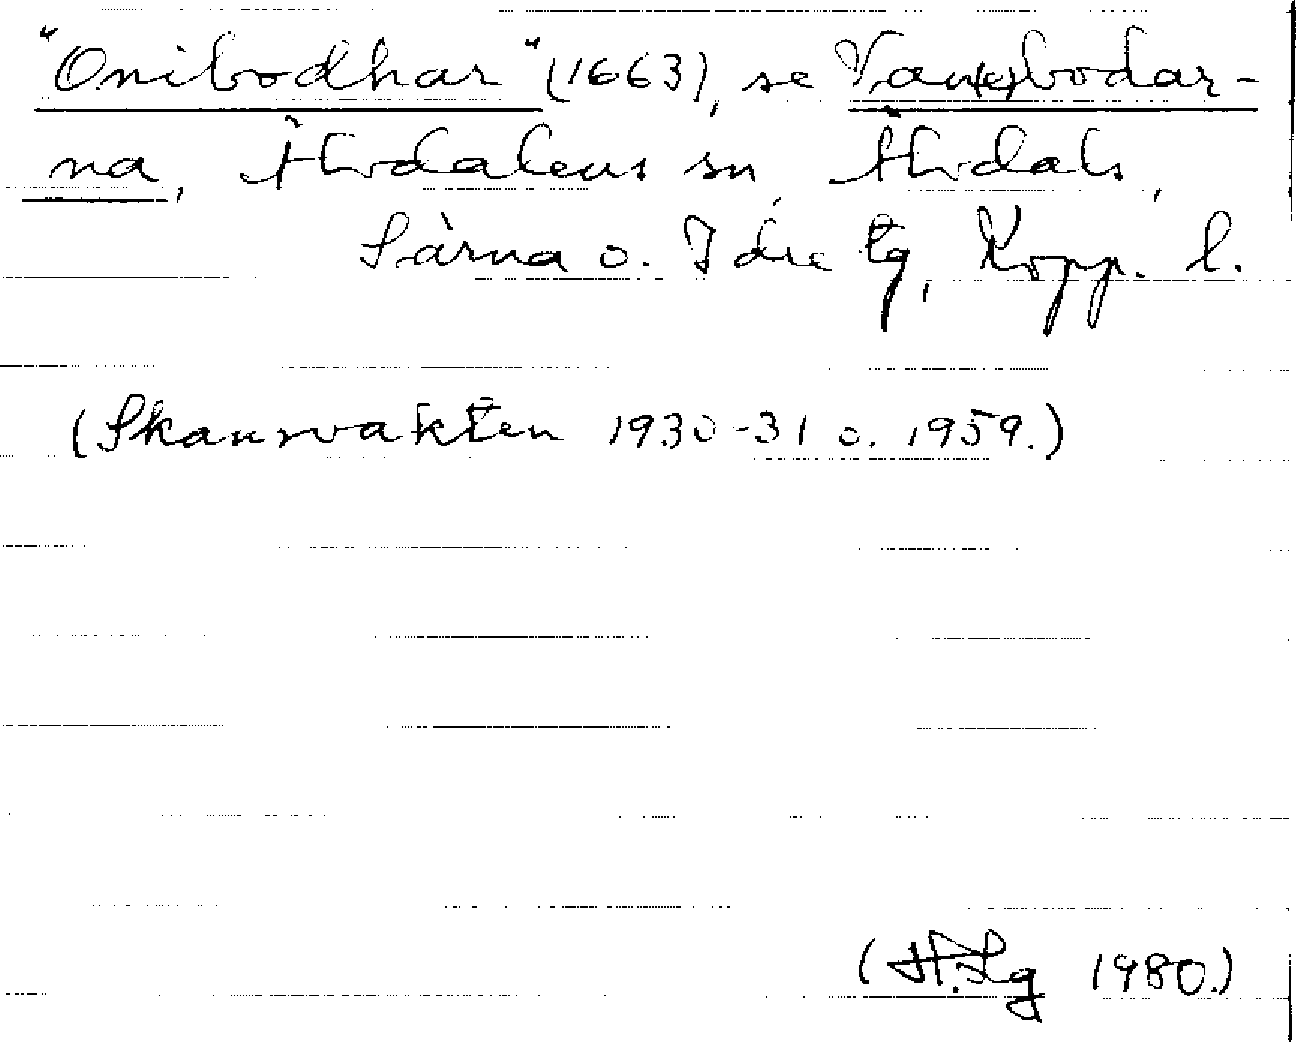 "Onibodhar" (1663), se
na, Älvdalens sn, Älvdals,
Särna o. Idre tg, Kopp. l.
(Skansvakten 1930-31 o. 1959.)
(H.Lg 1980.)